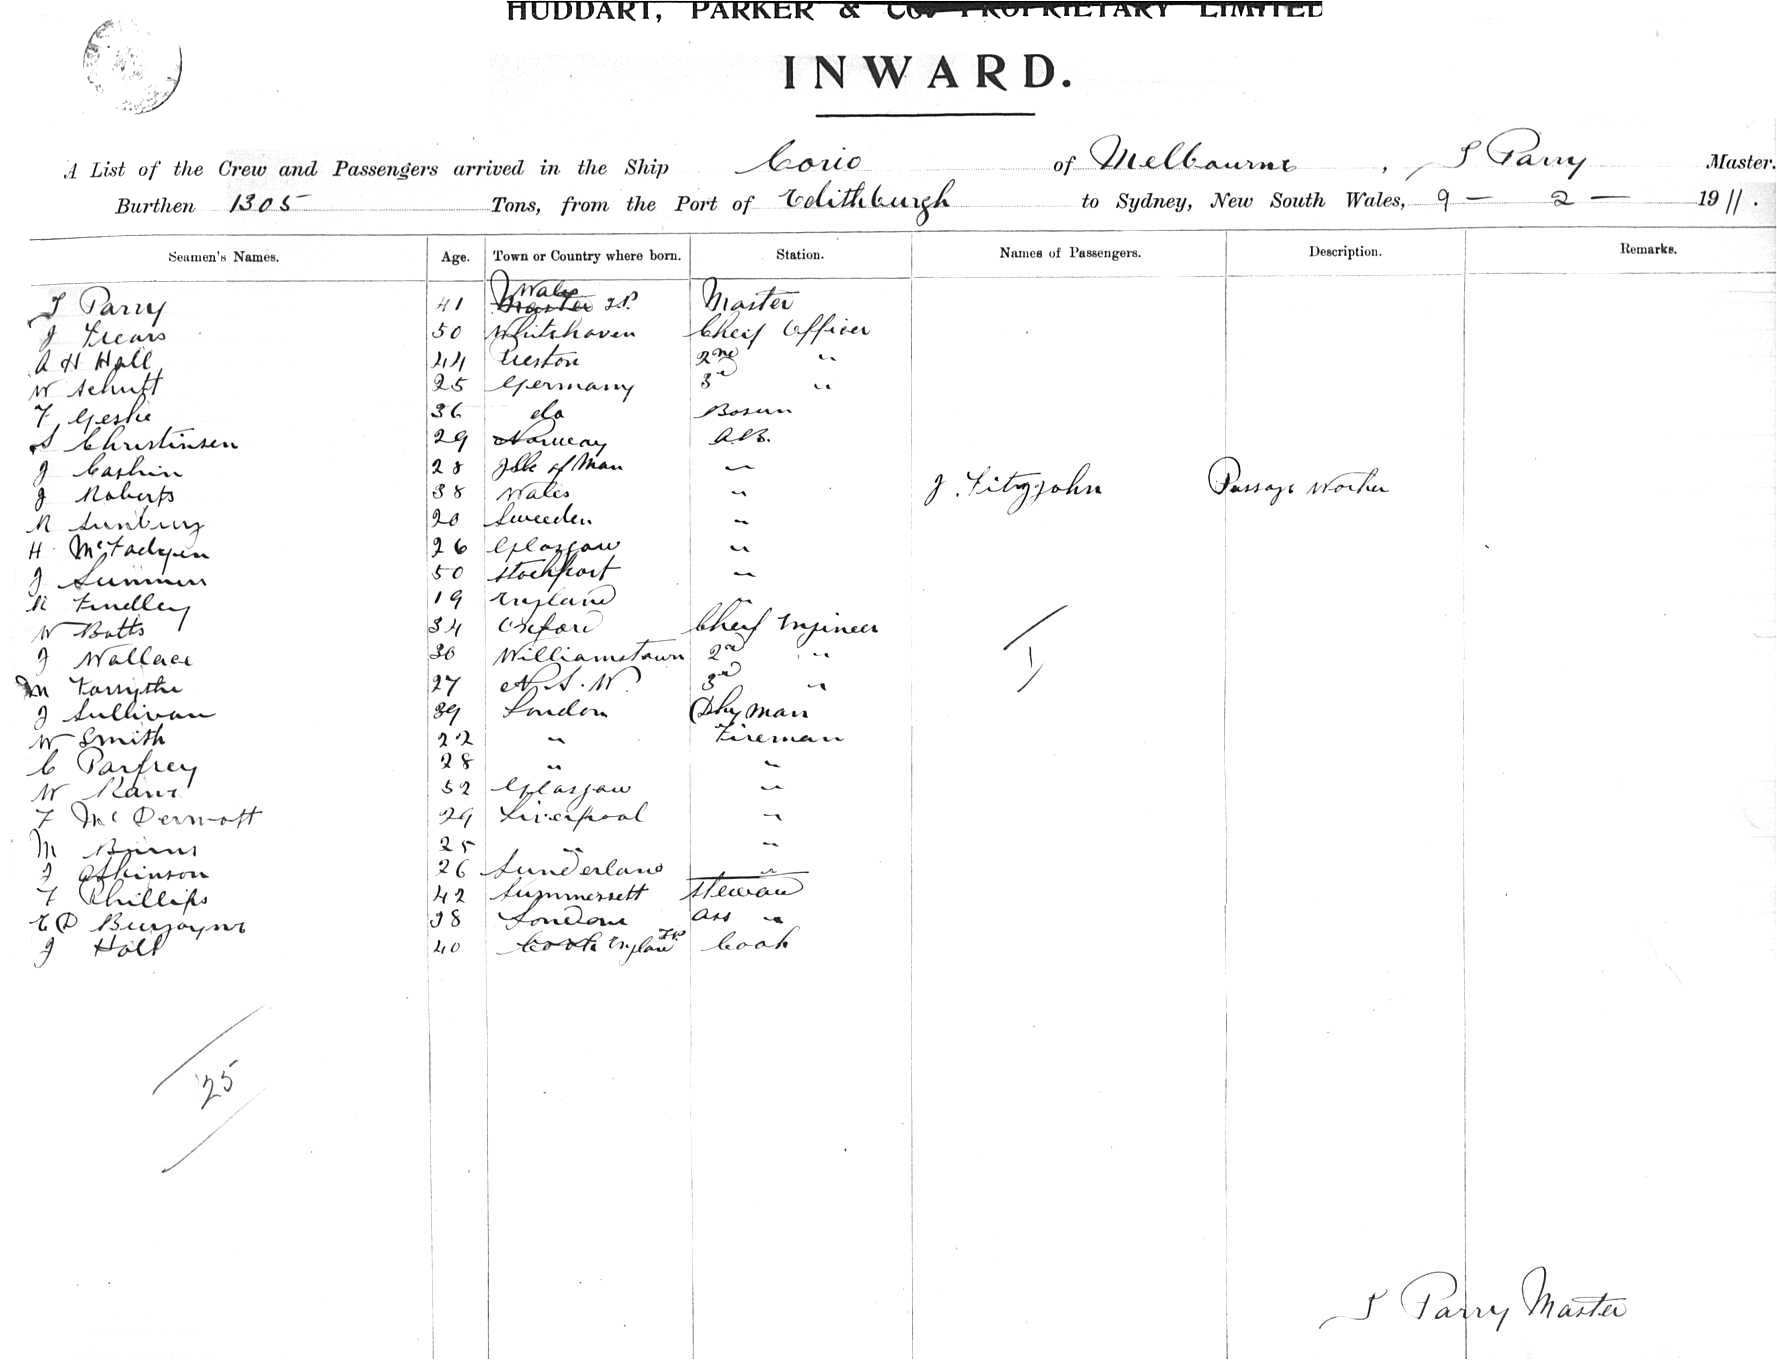 HUDDART, PARKER & CO. PROPRIETARY LIMITED
INWARD.
A List of the Crew and Passengers arrived in the Ship Corio of Melbourne, T Parry Master.
Burthen 1305 Tons, from the Port of Edithburgh to Sydney, New South Wales, 9 - 2 - 1911.
Seamen's Names. Age. Town or Country where born. Station. Names of Passengers. Description. Remarks.
Wales
T Parry 41 Master T.P. Master
J Frears 50 Whitehaven Cheif Officer
A H Hall 44 Preston 2nd "
W Schutt 25 Germany 3rd "
F Geske 36 do Bosun
S Christinsen 29 Norway A.B.
J Cashin 28 Isle of Man "
J Roberts 38 Wales " J. Fitzjohn Passage Worker
R 20 Sweeden "
H McFadyen 26 Glasgow "
J Summers 50 Stockport "
R Findley 19 England "
W Butts 34 Oxford Cheif Engineer
J Wallace 30 Williamstown 2nd "
M Forsythe 27 N.S.W. 3rd "
J Sullivan 39 London Dkyman
W Smith 22 " Fireman
C Parfrey 28 " "
W Kane 52 Glasgow "
F McDermott 29 Liverpool "
M Burns 25 " "
J Atkinson 26 Sunderland "
F Phillips 42 Summersett Steward
E P Burgoyne 38 London Ass "
J Holt 40 Cook England T.P. Cook
1
25
T Parry Master